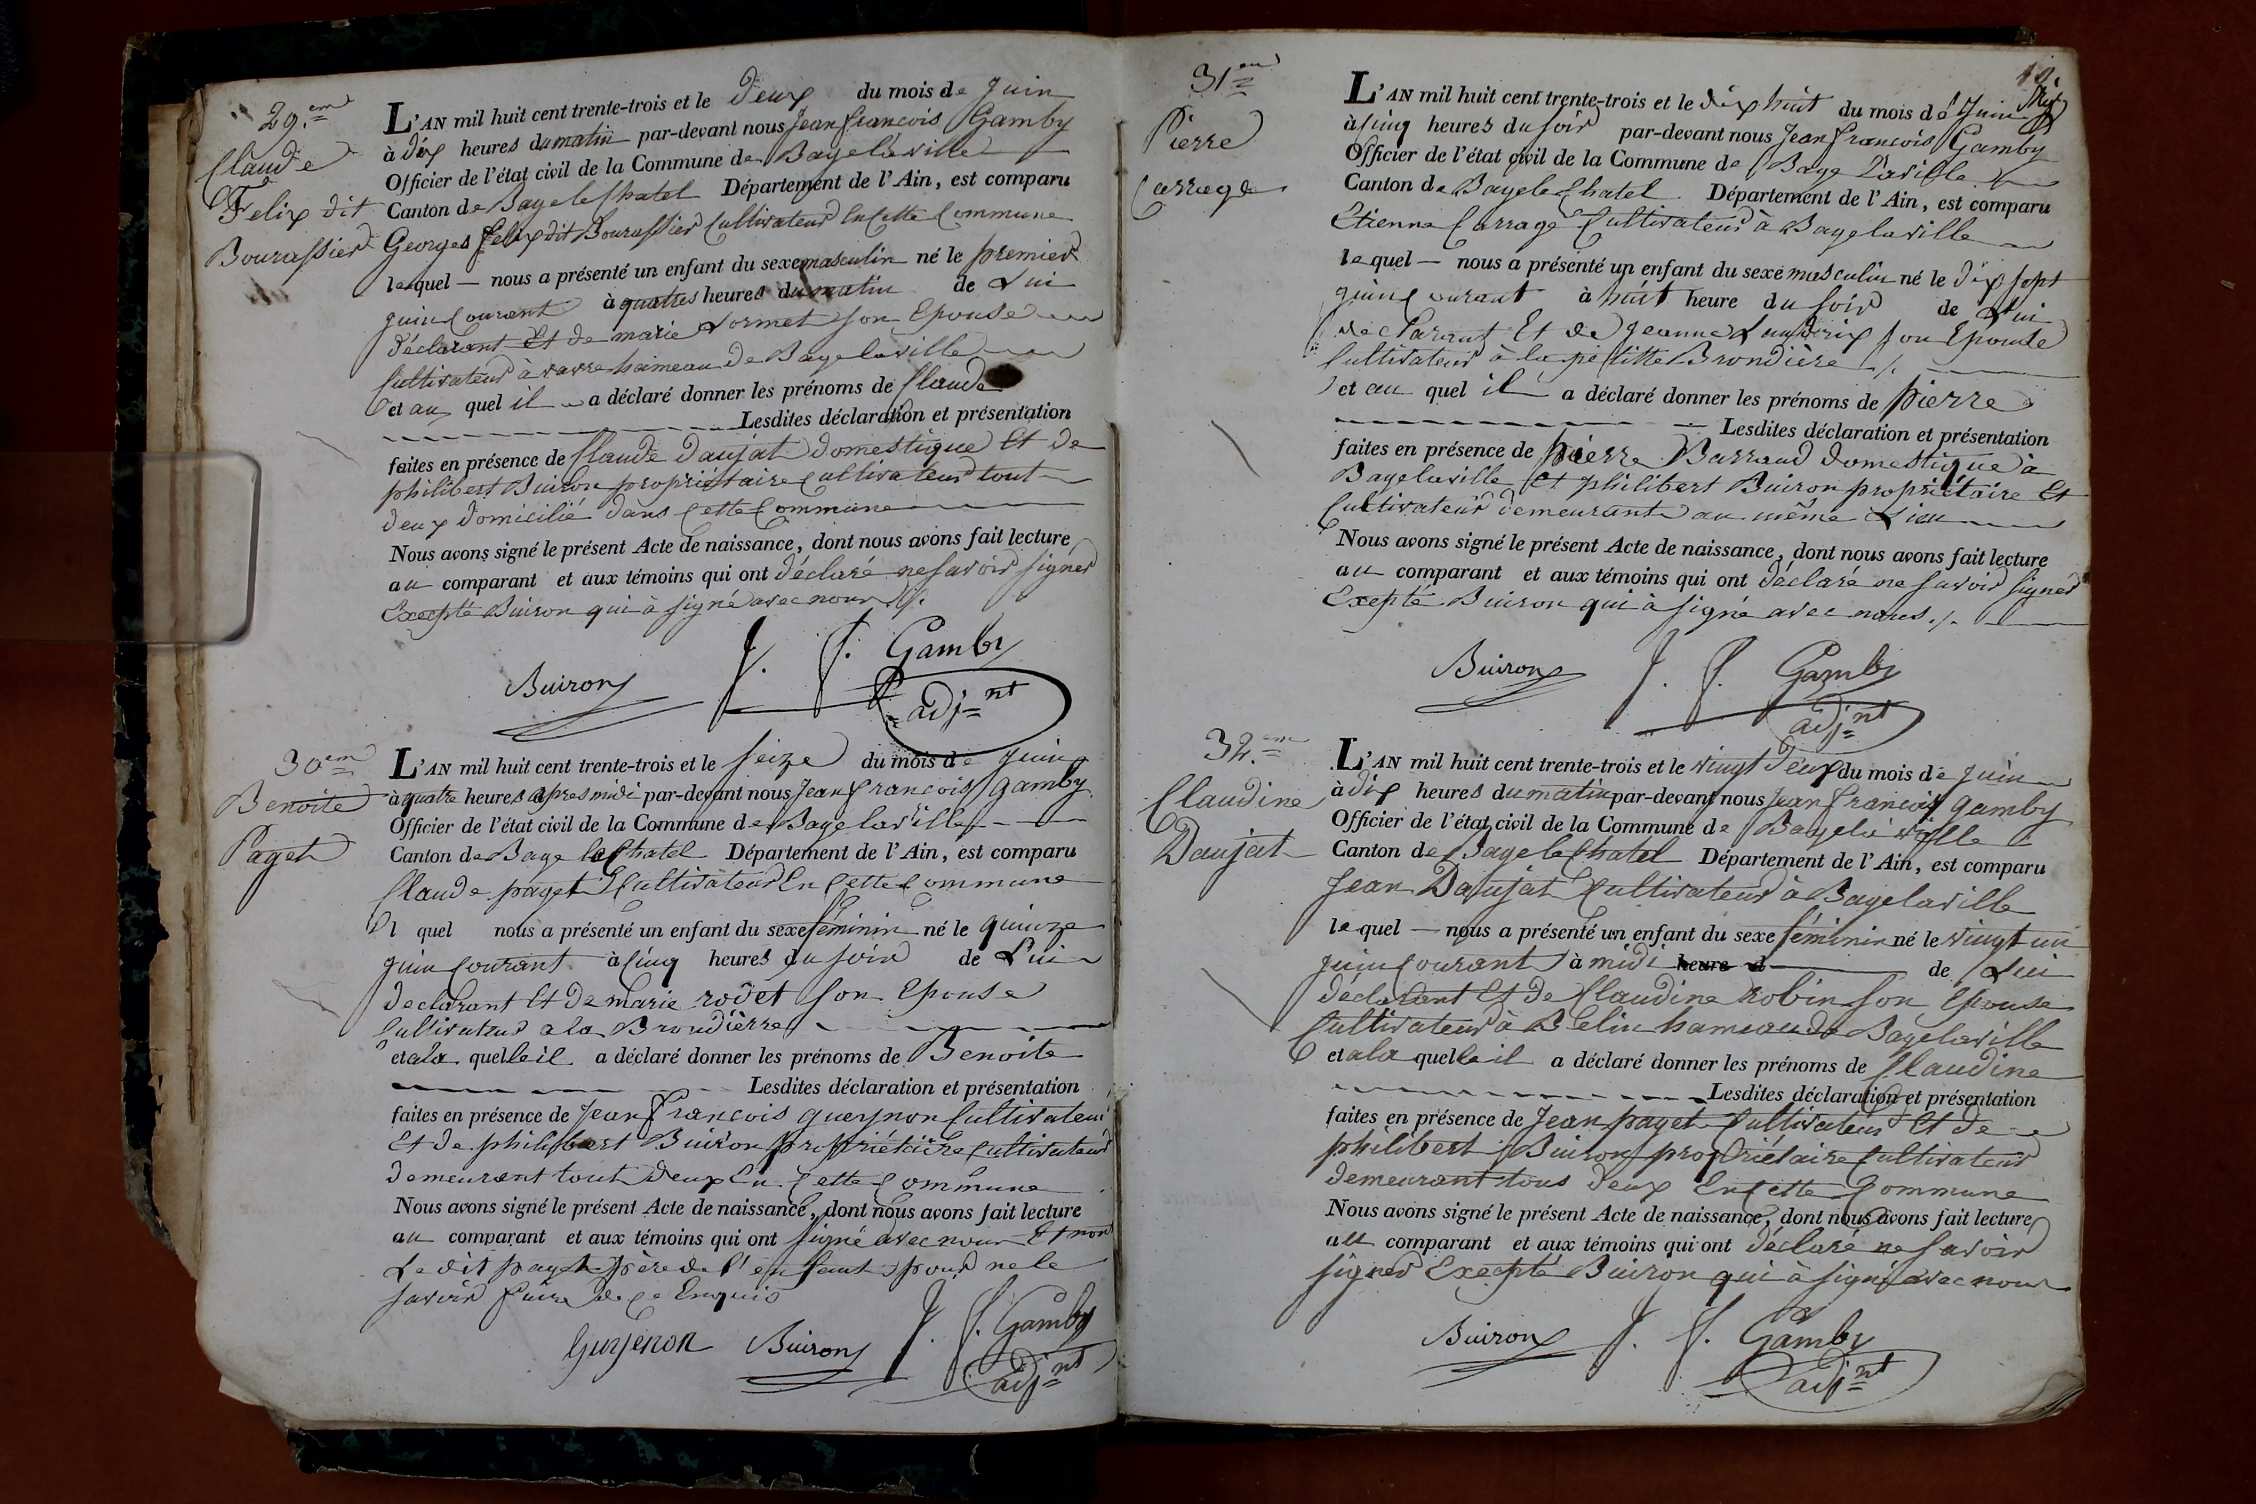 29.em
Claude
Felix dit
Bourassier
L'AN mil huit cent trente-trois et le deux du mois de Juin
à dix heures du matin par-devant nous Jean francois Gamby
Officier de l'état civil de la Commune de Bagelaville
Canton de Bagelechatel Département de l'Ain, est comparu
Georges felix dit Bourassier Cultivateur En Cette Commune
lequel — nous a présenté un enfant du sexe masculin né le premier
juin Courant à quatres heures du matin de Lui
déclarant Et de marie Lormet son Epouse
Cultivateur à vavre hameau de Bagelaville
et au quel il a déclaré donner les prénoms de Claude
Lesdites déclaration et présentation
faites en présence de Claude Daujat domestique Et de
philibert Buiron propriétaire Cultivateur tout
deux domicilié dans Cette Commune
Nous avons signé le présent Acte de naissance, dont nous avons fait lecture
au comparant et aux témoins qui ont déclaré ne savoir signer
Excepté Buiron qui à signé avec nous ./.
Buiron J. f. Gamby
adj=nt
30em
Benoite
Paget
L'AN mil huit cent trente-trois et le seize du mois de juin
à quatre heures apres midi par-devant nous Jean francois Gamby
Officier de l'état civil de la Commune de Bagelaville
Canton de Bage le Chatel Département de l'Ain, est comparu
Claude paget Cultivateur En Cette Commune
quel nous a présenté un enfant du sexe féminin né le quinze
juin Courant à Cinq heures du soir de Lui
declarant Et De marie rodet son Epouse
Cultivateur a la Broudièrre
et a la quelle il a déclaré donner les prénoms de Benoite
Lesdites déclaration et présentation
faites en présence de Jean francois guerjnon Cultivateur
Et de philibert Buiron propriétaire Cultivateur
demeurant tout deux En Cette Commune
Nous avons signé le présent Acte de naissance, dont nous avons fait lecture
au comparant et aux témoins qui ont signé avec nous Et non
Le dit paget père de l'enfant pour ne le
savoir faire de ce Enquis
Gurjenon Buiron J. f. Gamby
adj=nt
31em
Pierre
Carrage
L'AN mil huit cent trente-trois et le dix huit du mois de Juin
à Cinq heures du soir par-devant nous Jean francois Gamby
Officier de l'état civil de la Commune de Bage Laville
Canton de Bage le Chatel Département de l'Ain, est comparu
Etienne Carrage Cultivateur à Bagelaville
lequel — nous a présenté un enfant du sexe masculin né le dix sept
juin Courant à huit heure du soir de Lui
déclarant Et de Jeanne Landrix son Epouse
Cultivateur à la petitte Brondière ./.
et au quel il a déclaré donner les prénoms de pierre
Lesdites déclaration et présentation
faites en présence de pierre Barraud domestique à
Bagelaville Et philibert Buiron propriétaire Et
Cultivateur demeurant au même Lieu
Nous avons signé le présent Acte de naissance, dont nous avons fait lecture
au comparant et aux témoins qui ont déclaré ne savoir signer
Excepté Buiron qui à signé avec nous ./.
Buiron J. f. Gamby
adj=nt
32.em
Claudine
Daujat
L'AN mil huit cent trente-trois et le vingt deux du mois de juin
à dix heures du matin par-devant nous Jean francois gamby
Officier de l'état civil de la Commune de Bagelaville
Canton de Bagelechatel Département de l'Ain, est comparu
Jean Daujat Cultivateur à Bagelaville
lequel — nous a présenté un enfant du sexe féminin né le vingt un
juin Courant à midi heure d de Lui
déclarant Et de Claudine Robin son Epouse
Cultivateur à Belin hameau de Bagelaville
et a la quelle il a déclaré donner les prénoms de Claudine
Lesdites déclaration et présentation
faites en présence de Jean paget Cultivateur Et de
philibert Buiron propriétaire Cultivateur
demeurant tous deux En Cette Commune
Nous avons signé le présent Acte de naissance, dont nous avons fait lecture
au comparant et aux témoins qui ont déclaré ne savoir
signer Excepté Buiron qui à signé avec nous
Buiron J. f. Gamby
adj=nt